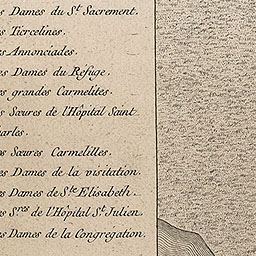 es Dames du St Sacrement.
es Tiercelines.
es Annonciades.
es Dames du Réfuge.
es grandes Carmelites.
es Sœures de l'Hôpital Saint
arles.
es Sœures Carmelites.
es Dames de la visitation.
es Dames de Ste Elisabeth.
es Sres de l'Hôpital St Julien.
es Dames de la Congrégation.